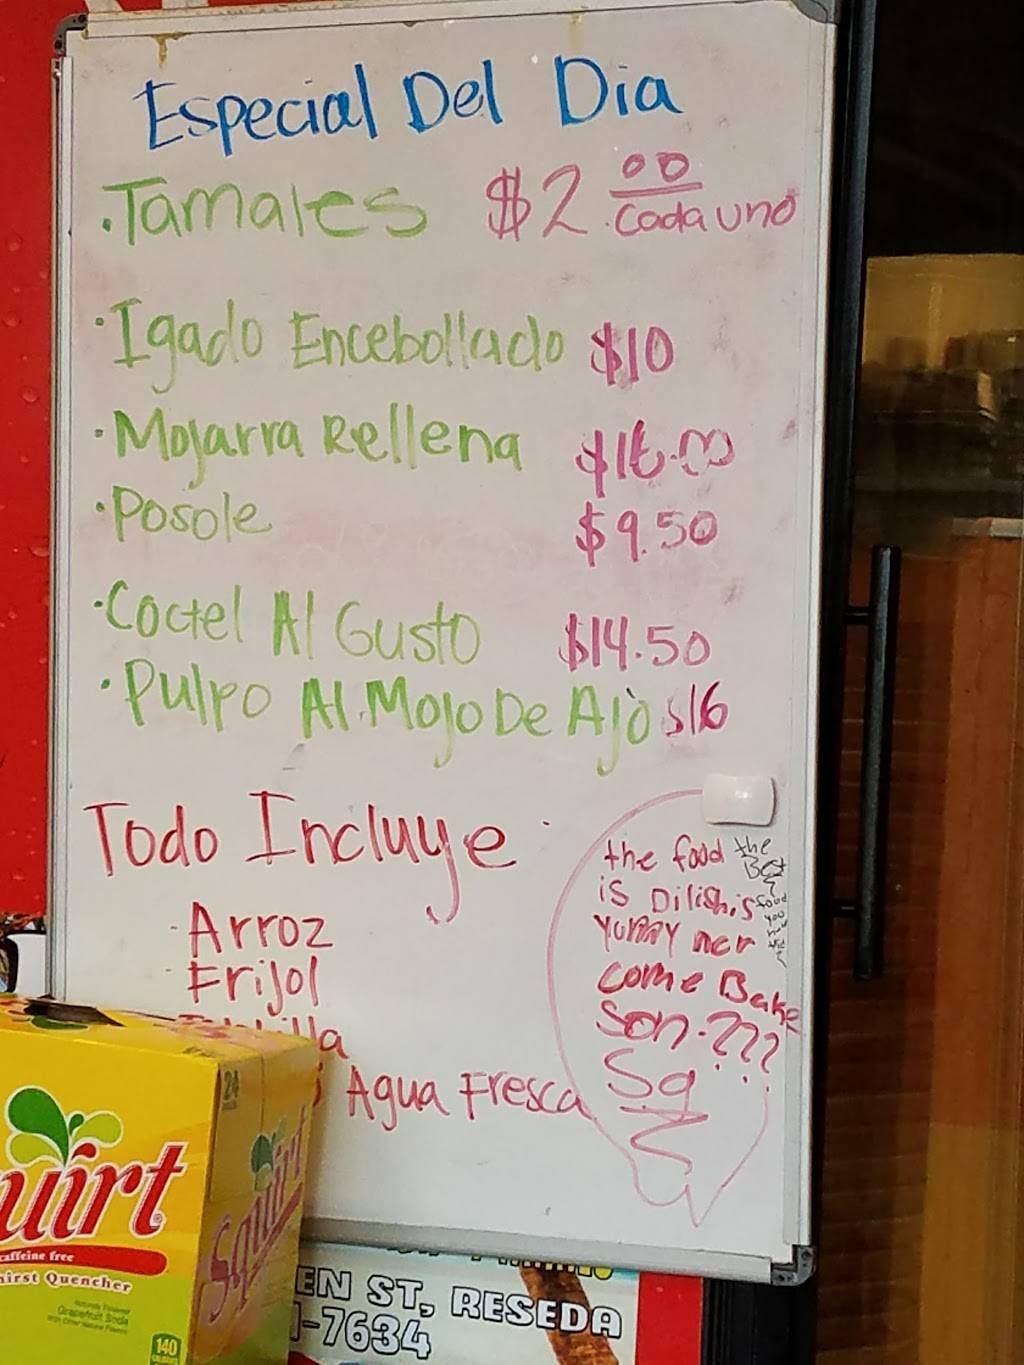 Especial Del Dia
·Tamales $2.00 cada uno
·Igado Encebollado $10
·Mojarra Rellena $16.00
·Posole $9.50
·Coctel Al Gusto $14.50
·Pulpo Al Mojo De Ajo $16
Todo Incluye
·Arroz
·Frijol
lla
Agua Fresca
the food
is Dilish,is
yummy ner
come Bake
Son.???
Sg
the
Best
food
you
uirt
caffeine free
hirst Quencher
Naturally Flavored
Grapefruit Soda
With Other Natural Flavors
140
CALORIES
24
Squirt
EN ST, RESEDA
-7634